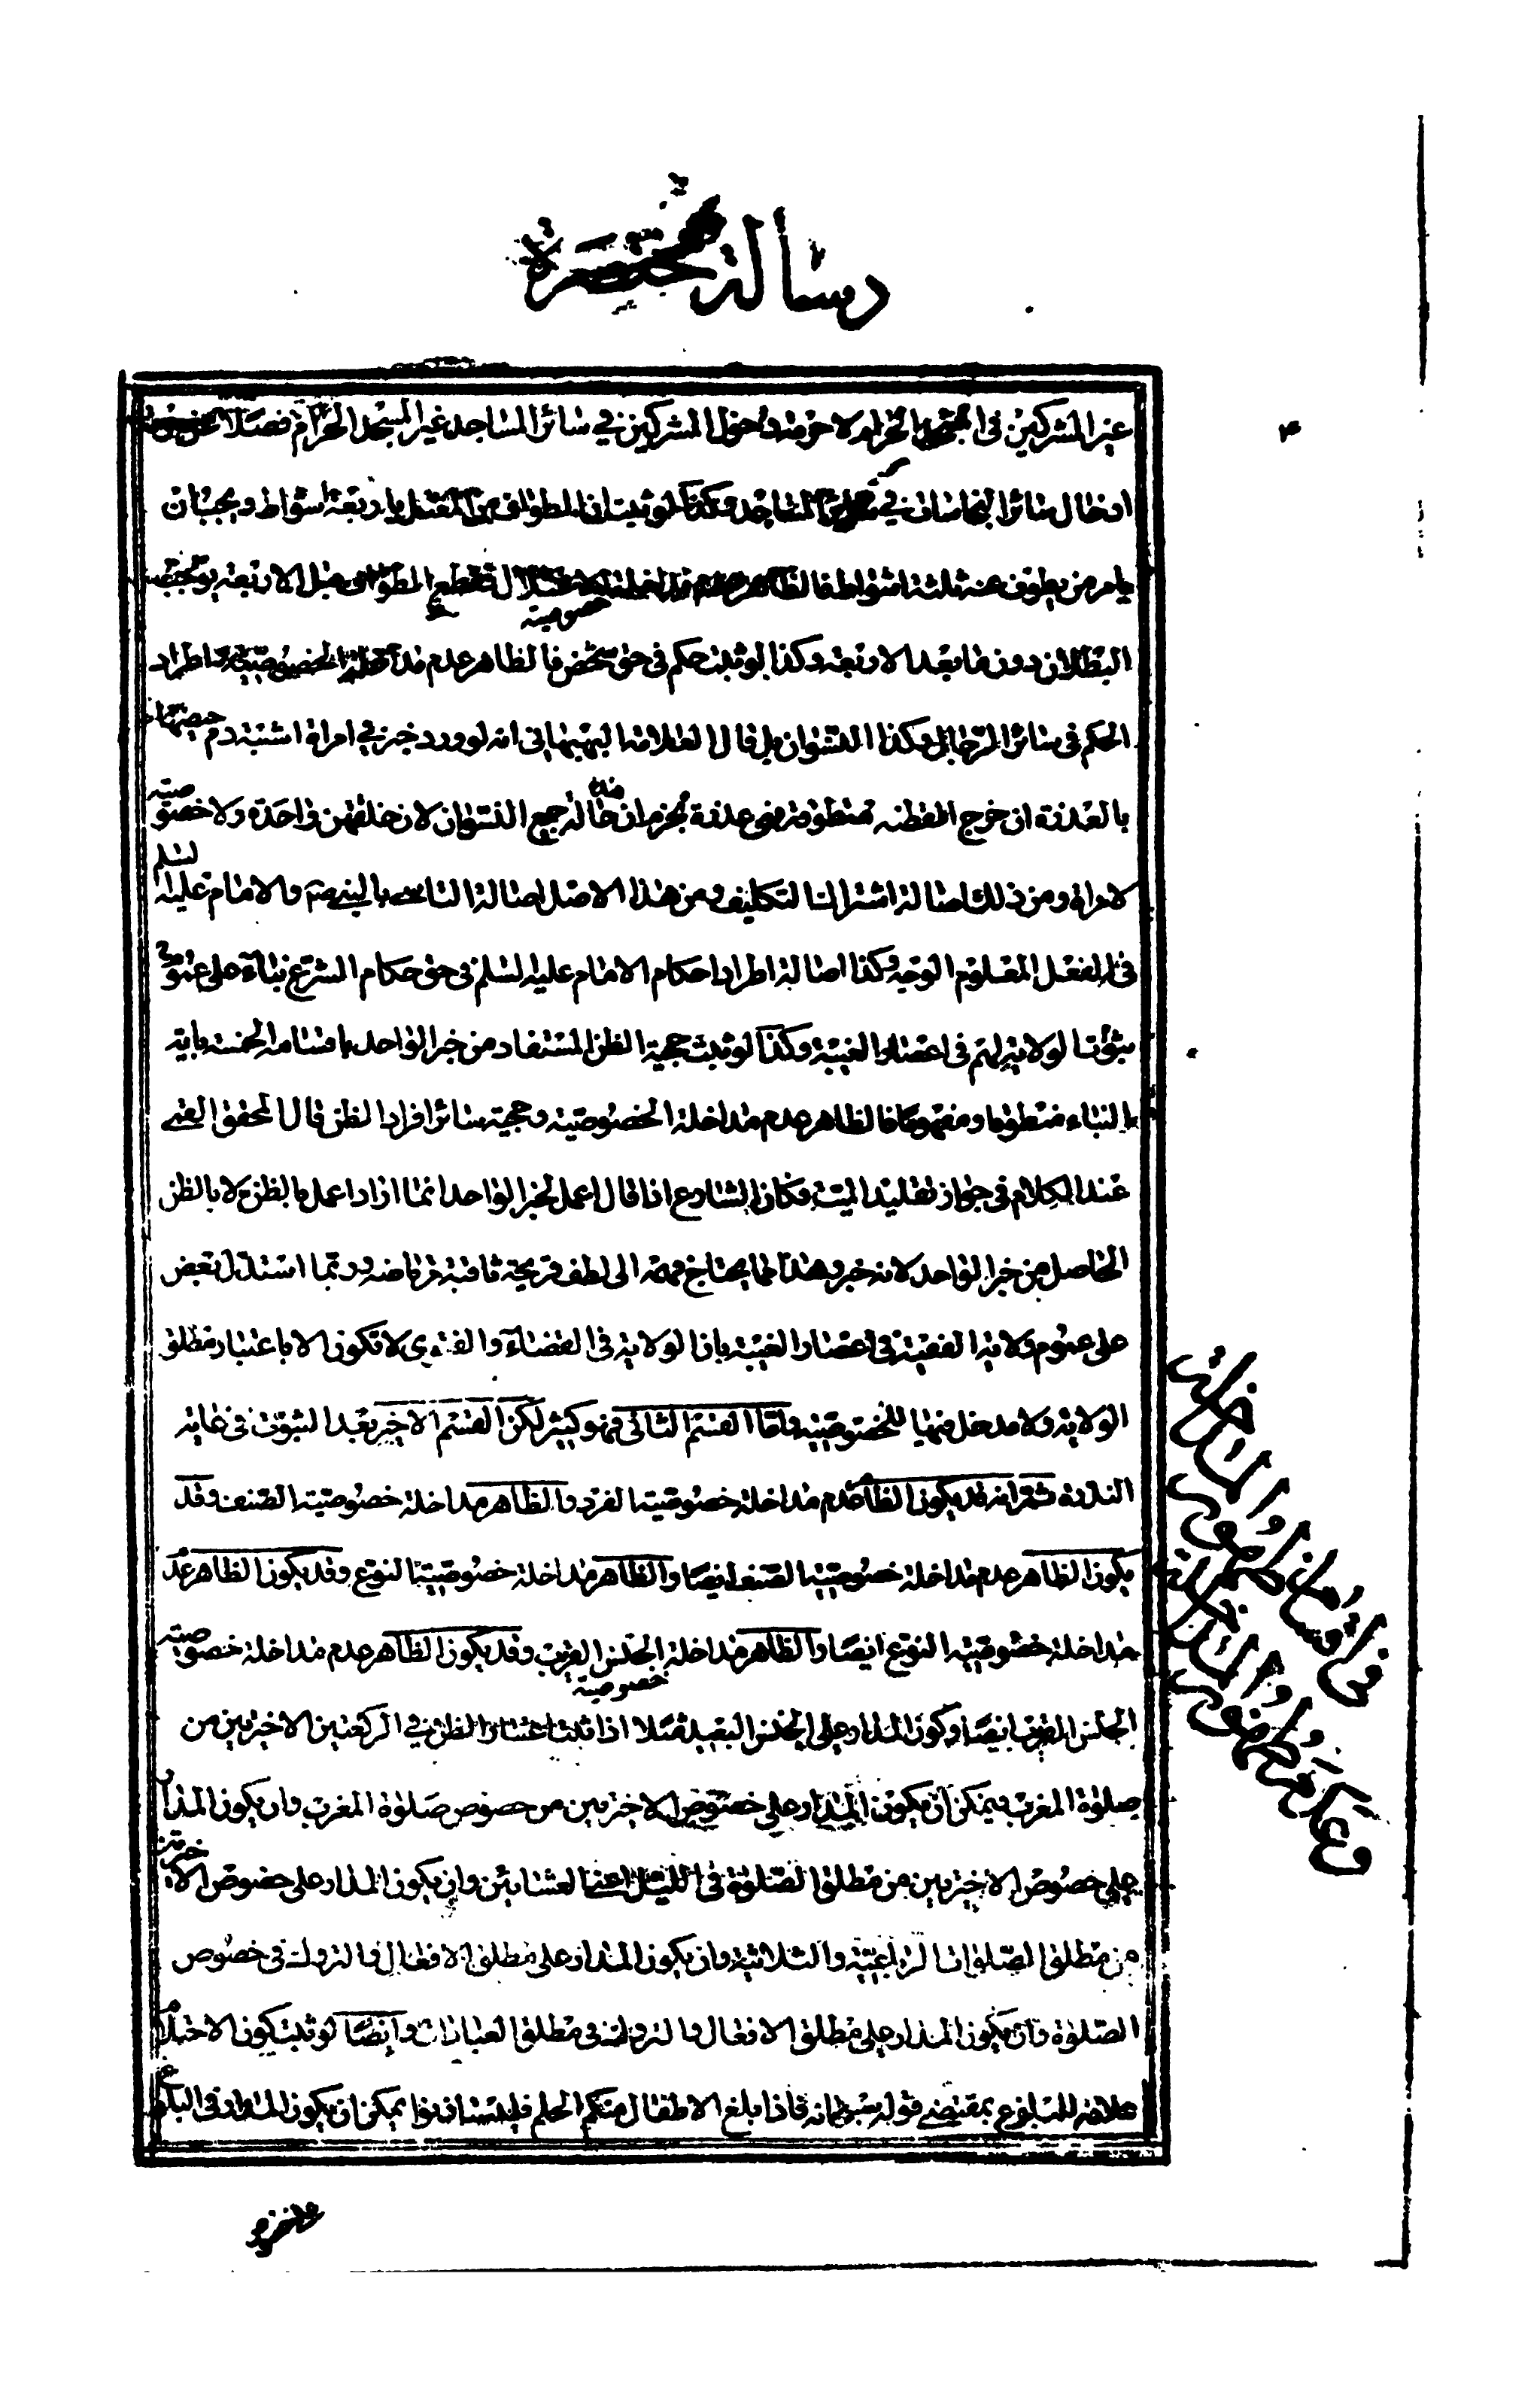 رسالة مختصرة
غير المشركين فى المسجد الحرام ولا حرمة دخول المشركين في سائر المساجد غير المسجد الحرام فضلا عن
ادخال سائر النجاسات في سائر المساجد وكذا لو ثبت ان الطواف من باربعة اشواط ويجب ان
يامر من يطوف عنه ثلثة اشواط فالظاهر عدم مداخلة قطع الطواف قبل الاربعة يوجب
خصوصية
البطلان دون ما بعد الاربعة وكذا لو ثبت حكم فى حق شخص فالظاهر عدم مداخلة الخصوصية واطراد
الحكم فى سائر الرجال وكذا النسوان بل قال العلامة البهبهانى انه لو ورد خبر في امراة اشتبه دم حيضها
بالعذرة ان خرج القطنه منطوقة فهى عذرة نجزم ان حالة جميع النسوان لان خلقتهن واحدة ولا خصوصية
لامراة ومن ذلك اصالة اشتراك التكليف ومن هذا الاصل اصالة التاسى بالنبى ص والامام عليه السلم
فى الفعل المعلوم الوجه وكذا اصالة اطراد احكام الامام عليه السلم فى حق حكام الشرع بناء على عموم
ثبوت الولاية لهم فى اعصار الغيبة وكذا لو ثبت حجية الظن المستفاد من خبر الواحد باقسامه الخمسة باية
النباء منطوقا ومفهوما فالظاهر عدم مداخلة الخصوصية وحجية سائر افراد الظن قال المحقق القمى
عند الكلام فى جواز تقليد الميت فكان الشارع اذا قال اعمل بخبر الواحد انما اراد اعمل بالظن لا بالظن
الحاصل من خبر الواحد لانه خبر وهذا مما يحتاج فهمه الى لطف قريحة ثاقبة مرتاضة وربما استدل بعض
على عموم ولاية الفقيه فى اعصار الغيبة بان الولاية فى القضاء والفتوى لا تكون الا باعتبار مطلق
الولاية ولا مدخل فيها للخصوصية واما القسم الثانى فهو كثير لكن القسم الاخير بعد الثبوت فى غاية
الندرة ثم انه قد يكون الظاهر عدم مداخلة خصوصية الفرد والظاهر مداخلة خصوصية الصنف وقد
يكون الظاهر عدم مداخلة خصوصية الصنف ايضا والظاهر مداخلة خصوصية النوع وقد يكون الظاهر عدم
مداخلة خصوصية النوع ايضا والظاهر مداخلة الجنس القريب وقد يكون الظاهر عدم مداخلة خصوصية
خصوصية
الجنس القريب ايضا وكون المدار على الجنس البعيد مثلا اذا ثبت اعتبار الظن في الركعتين الاخيرتين من
صلوة المغرب فيمكن ان يكون المدار على خصوص الاخيرتين من خصوص صلوة المغرب وان يكون المدار
على خصوص الاخيرتين من مطلق الصلوة فى الليل اعنى العشائين وان يكون المدار على خصوص الاخيرتين
من مطلق الصلوات الرباعية والثلاثية وان يكون المدار على مطلق الافعال والتروك فى خصوص
الصلوة وان يكون المدار على مطلق الافعال والتروك فى مطلق العبادات وايضا لو ثبت كون الاحتلام
علامة للبلوغ بمقتضى قوله سبحانه فاذا بلغ الاطفال منكم الحلم فليستاذنوا يمكن ان يكون المدار فى البلوغ